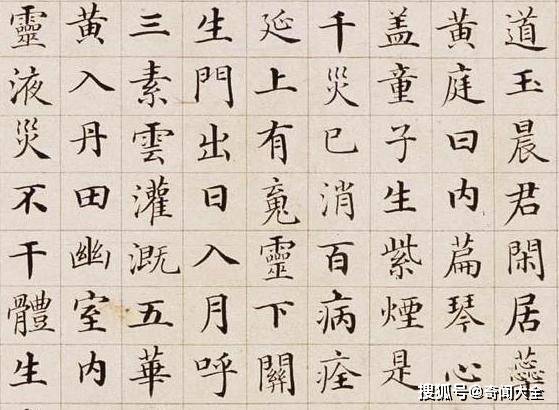 道玉晨君閑居
黄庭曰内萹琴心
盖童子生紫煙是
千災已消百病痊
延上有魂靈下關
生門出日入月呼
三素雲灌溉五華
黄入丹田幽室内
靈液災不干體生
搜狐号@奇闻大全